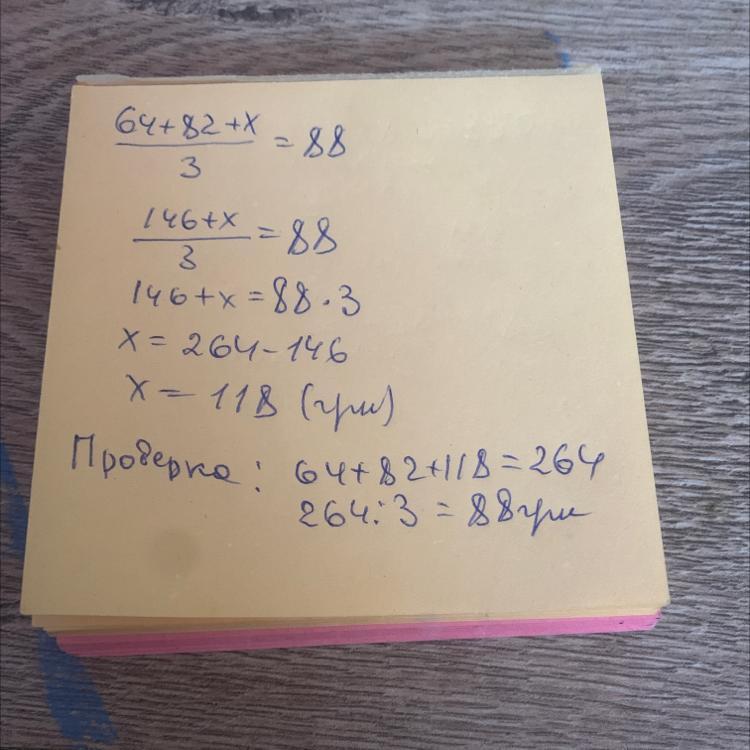 64+82+x
3
= 88
146+x
3
= 88
146+x = 88 · 3
x = 264 - 146
x = 118 (грн)
Проверка : 64+82+118 = 264
264 : 3 = 88 грн